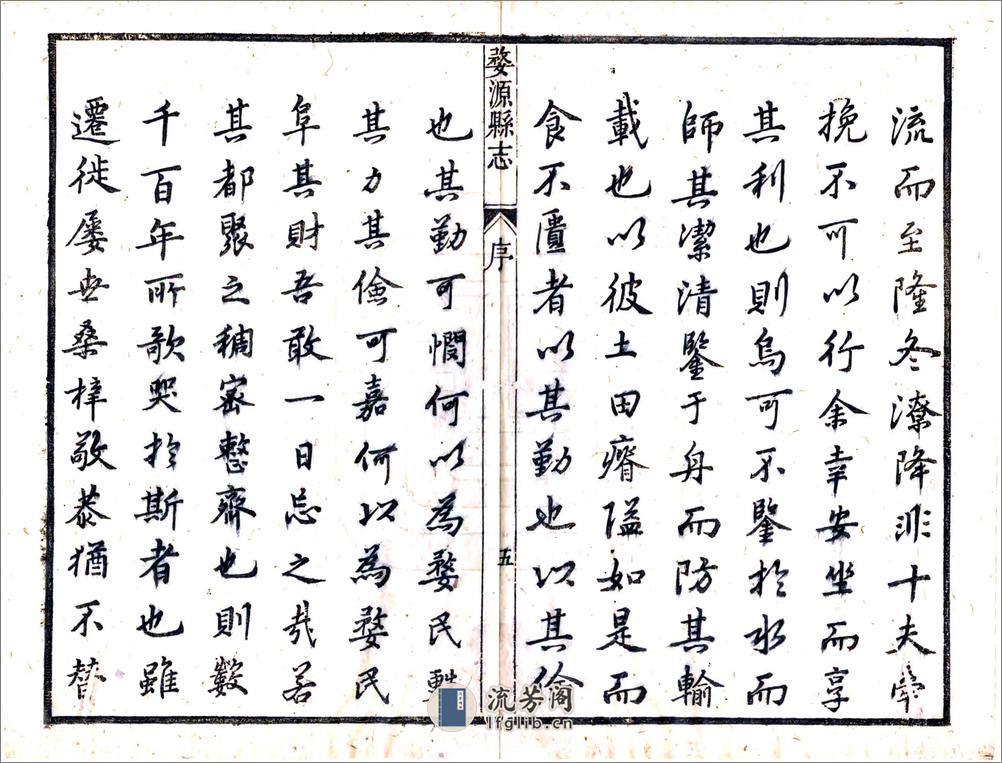 流而至隆冬潦降非十夫牽
挽不可以行余幸安坐而享
其利也則烏可不鑒於水而
師其潔清鑒于舟而防其輸
載也以彼土田瘠隘如是而
食不匱者以其勤也以其儉
婺源縣志
序
五
也其勤可憫何以為婺民甦
其力其儉可嘉何以為婺民
阜其財吾敢一日忘之哉若
其都聚之稠密整齊也則數
千百年所歌哭於斯者也雖
遷徙屢世桑梓敬恭猶不替
流芳阁
lfglib.cn